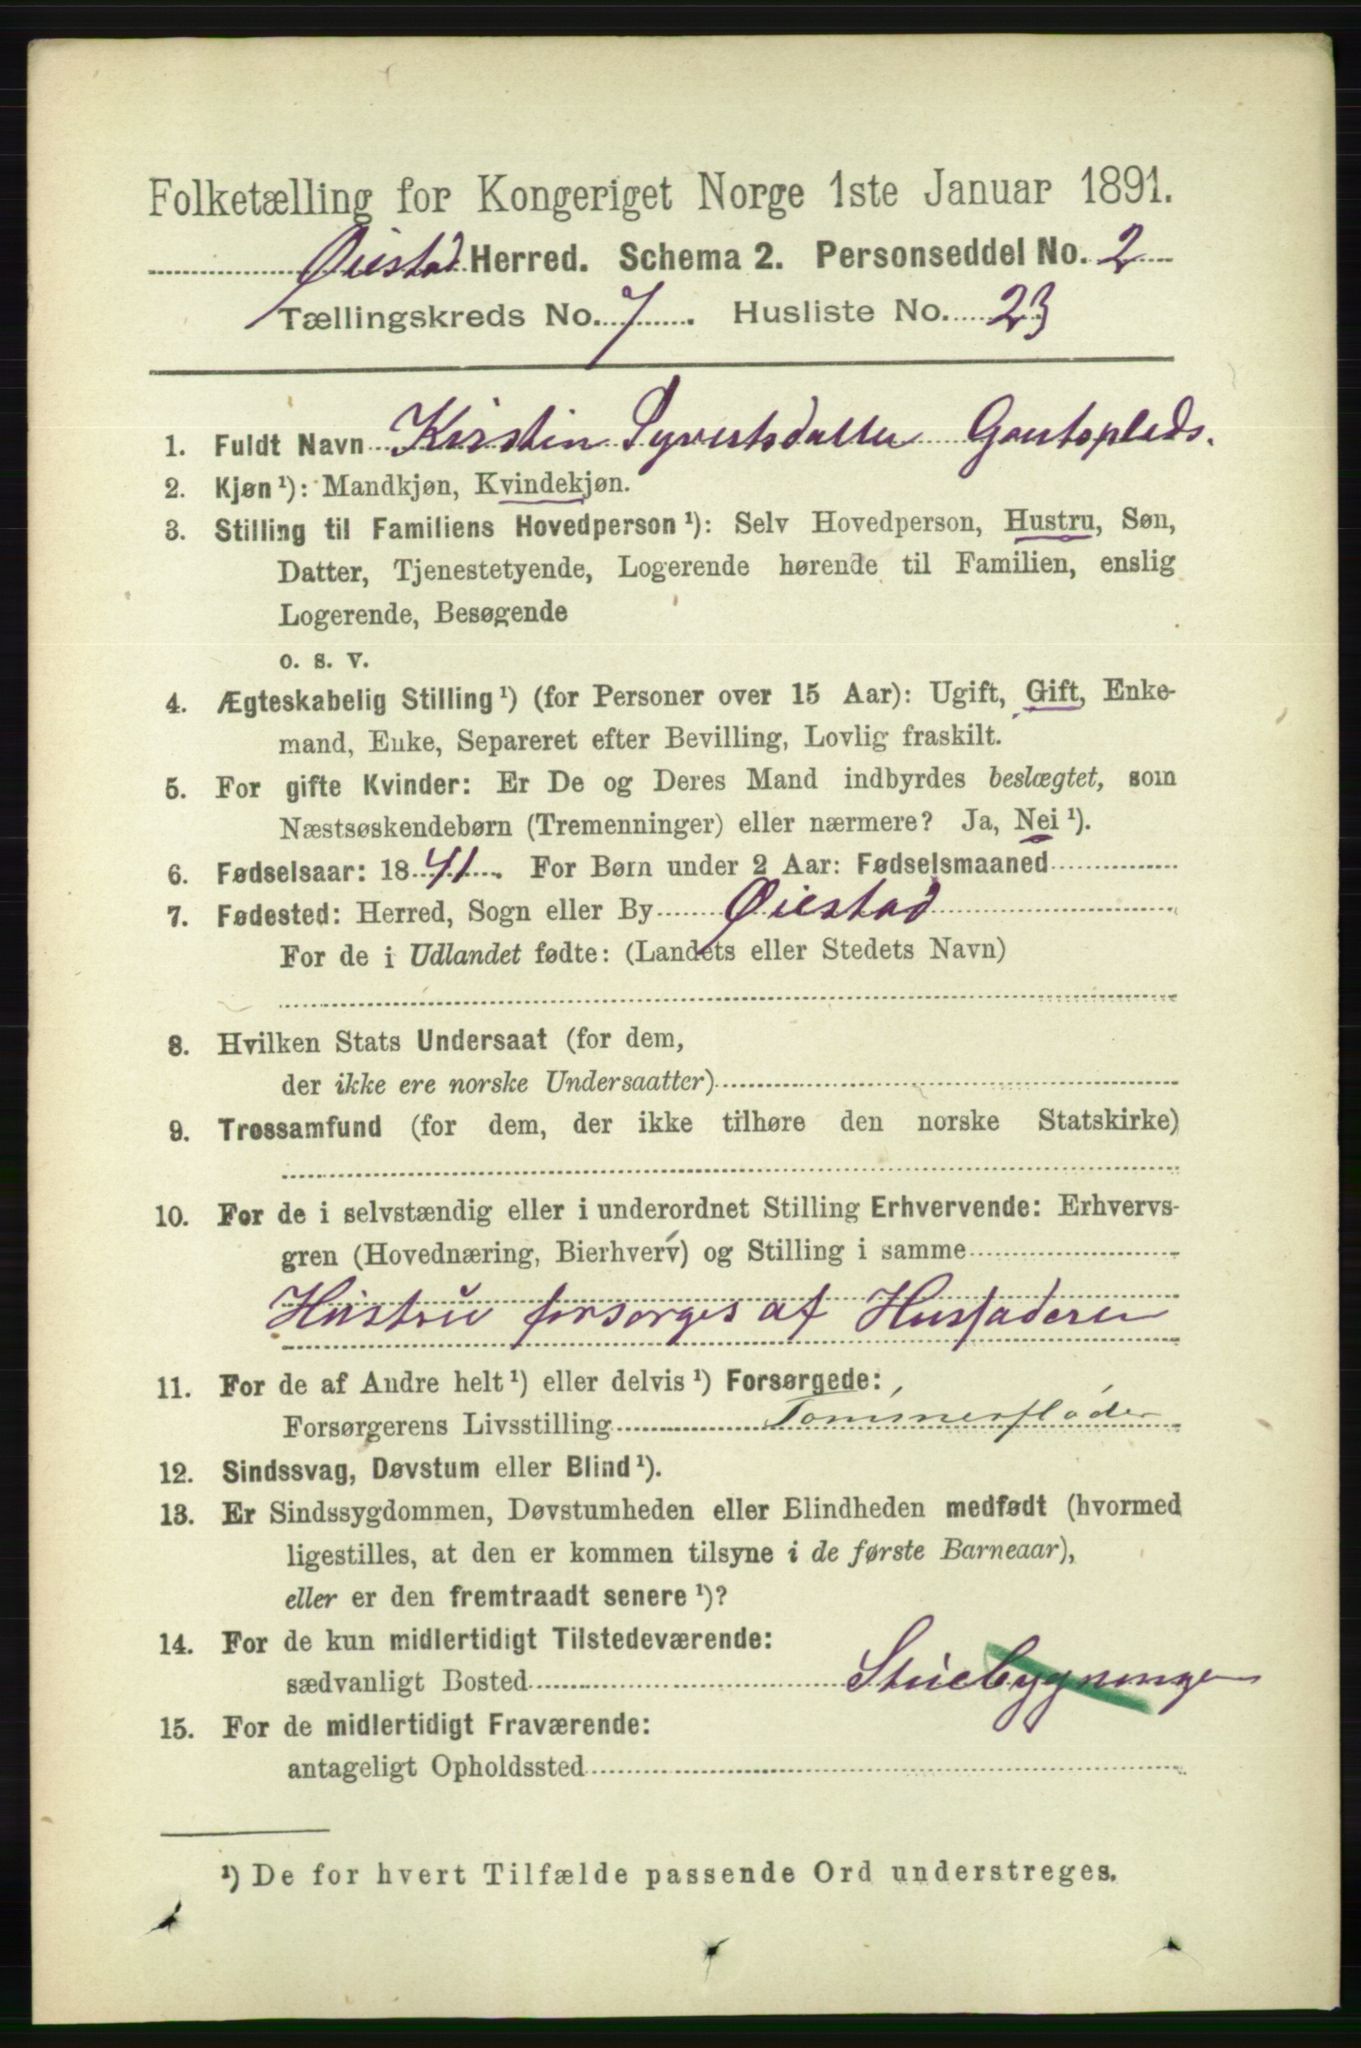 Folketælling for Kongeriget Norge 1ste Januar 1891.
Øiestad Herred. Schema 2. Personseddel No. 2
Tællingskreds No. 7. Husliste No. 23
1. Fuldt Navn Kirstin Syvertsdatter
2. Kjøn ¹): Mandkjøn, Kvindekjøn.
3. Stilling til Familiens Hovedperson ¹): Selv Hovedperson, Hustru, Søn,
Datter, Tjenestetyende, Logerende hørende til Familien, enslig
Logerende, Besøgende
o. s. v.
4. Ægteskabelig Stilling ¹) (for Personer over 15 Aar): Ugift, Gift, Enke-
mand, Enke, Separeret efter Bevilling, Lovlig fraskilt.
5. For gifte Kvinder: Er De og Deres Mand indbyrdes beslægtet, som
Næstsøskendebørn (Tremenninger) eller nærmere? Ja, Nei ¹).
6. Fødselsaar: 1841. For Børn under 2 Aar: Fødselsmaaned
7. Fødested: Herred, Sogn eller By Øiestad
For de i Udlandet fødte: (Landets eller Stedets Navn)
8. Hvilken Stats Undersaat (for dem,
der ikke ere norske Undersaatter)
9. Trossamfund (for dem, der ikke tilhøre den norske Statskirke)
10. For de i selvstændig eller i underordnet Stilling Erhvervende: Erhvervs-
gren (Hovednæring, Bierhverv) og Stilling i samme
Hustru forsorges af Husfaderen
11. For de af Andre helt ¹) eller delvis ¹) Forsørgede:
Forsørgerens Livsstilling Tømmerfløder
12. Sindssvag, Døvstum eller Blind ¹).
13. Er Sindssygdommen, Døvstumheden eller Blindheden medfødt (hvormed
ligestilles, at den er kommen tilsyne i de første Barneaar),
eller er den fremtraadt senere ¹)?
14. For de kun midlertidigt Tilstedeværende:
sædvanligt Bosted Stuebygninge
15. For de midlertidigt Fraværende:
antageligt Opholdssted
¹) De for hvert Tilfælde passende Ord understreges.